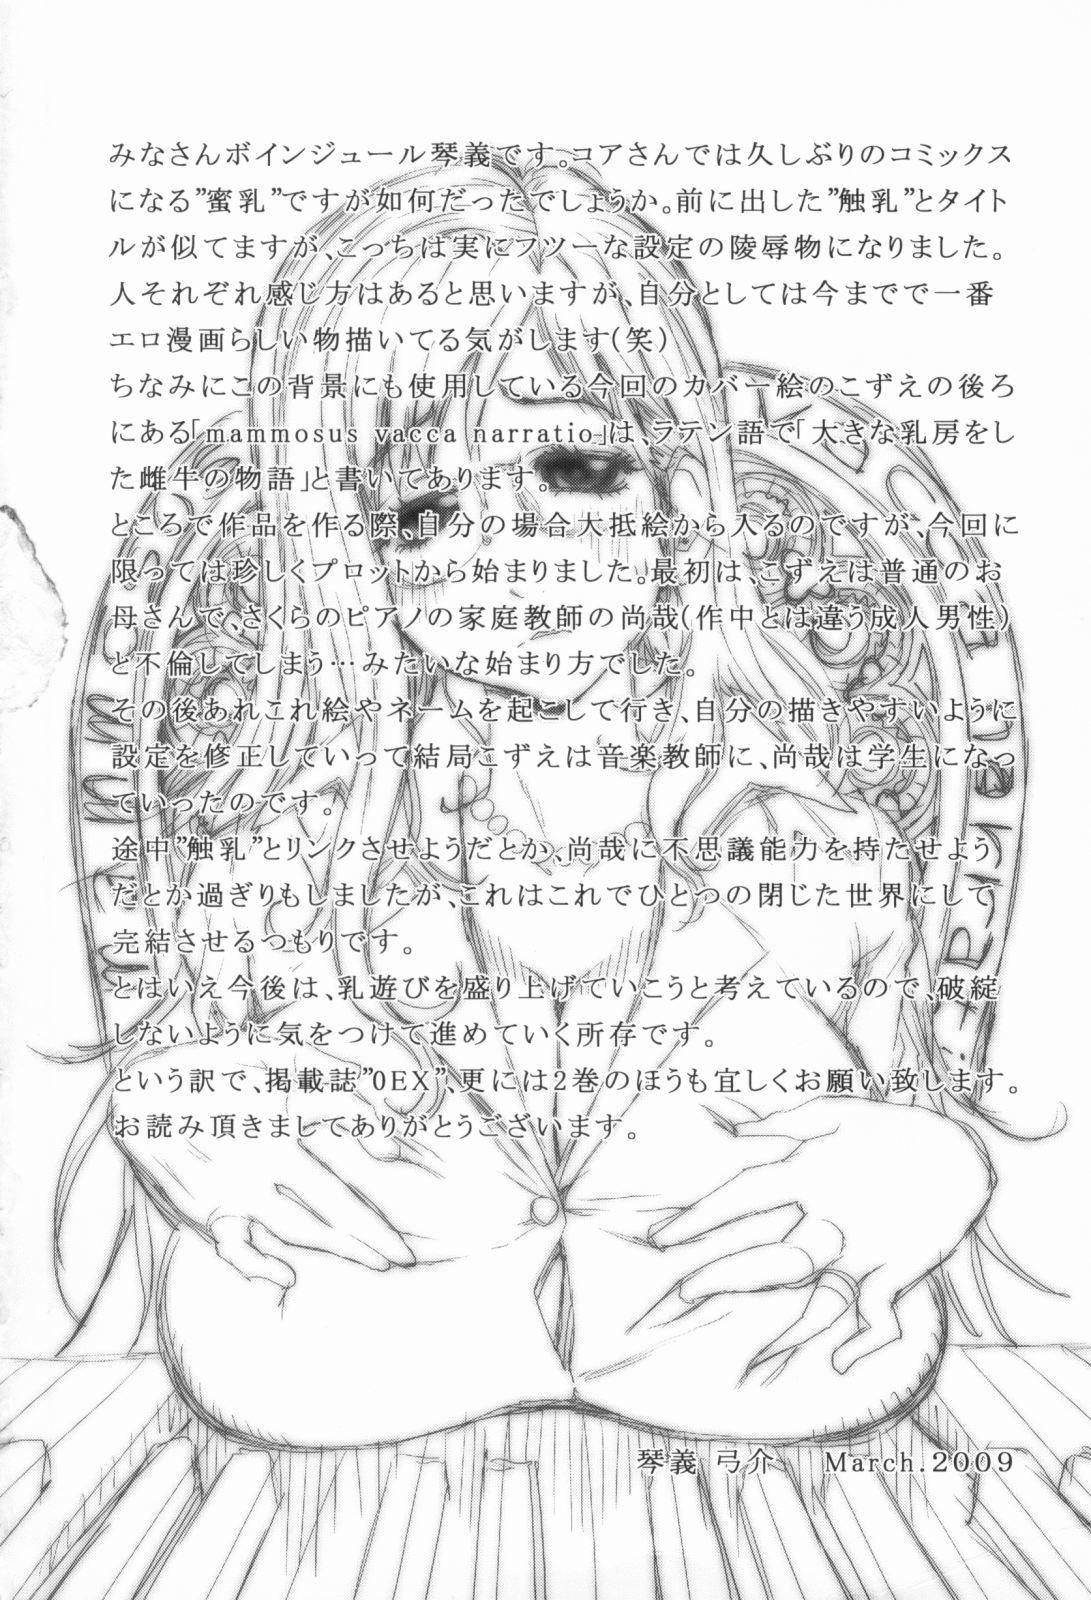 みなさんボインジュール琴義です。コアさんでは久しぶりのコミックス
になる”蜜乳”ですが如何だったでしょうか。前に出した”触乳”とタイト
ルが似てますが、こっちは実にフツーな設定の陵辱物になりました。
人それぞれ感じ方はあると思いますが、自分としては今までで一番
エロ漫画らしい物描いてる気がします(笑)
ちなみにこの背景にも使用している今回のカバー絵のこずえの後ろ
にある「mammosus vacca narratio」は、ラテン語で「大きな乳房をし
た雌牛の物語」と書いてあります。
ところで作品を作る際、自分の場合大抵絵から入るのですが、今回に
限っては珍しくプロットから始まりました。最初は、こずえは普通のお
母さんで、さくらのピアノの家庭教師の尚哉(作中とは違う成人男性)
と不倫してしまう…みたいな始まり方でした。
その後あれこれ絵やネームを起こして行き、自分の描きやすいように
設定を修正していって結局こずえは音楽教師に、尚哉は学生になっ
ていったのです。
途中”触乳”とリンクさせようだとか、尚哉に不思議能力を持たせよう
だとか過ぎりもしましたが、これはこれでひとつの閉じた世界にして
完結させるつもりです。
とはいえ今後は、乳遊びを盛り上げていこうと考えているので、破綻
しないように気をつけて進めていく所存です。
という訳で、掲載誌”0EX”、更には2巻のほうも宜しくお願い致します。
お読み頂きましてありがとうございます。
琴義 弓介 March.2009